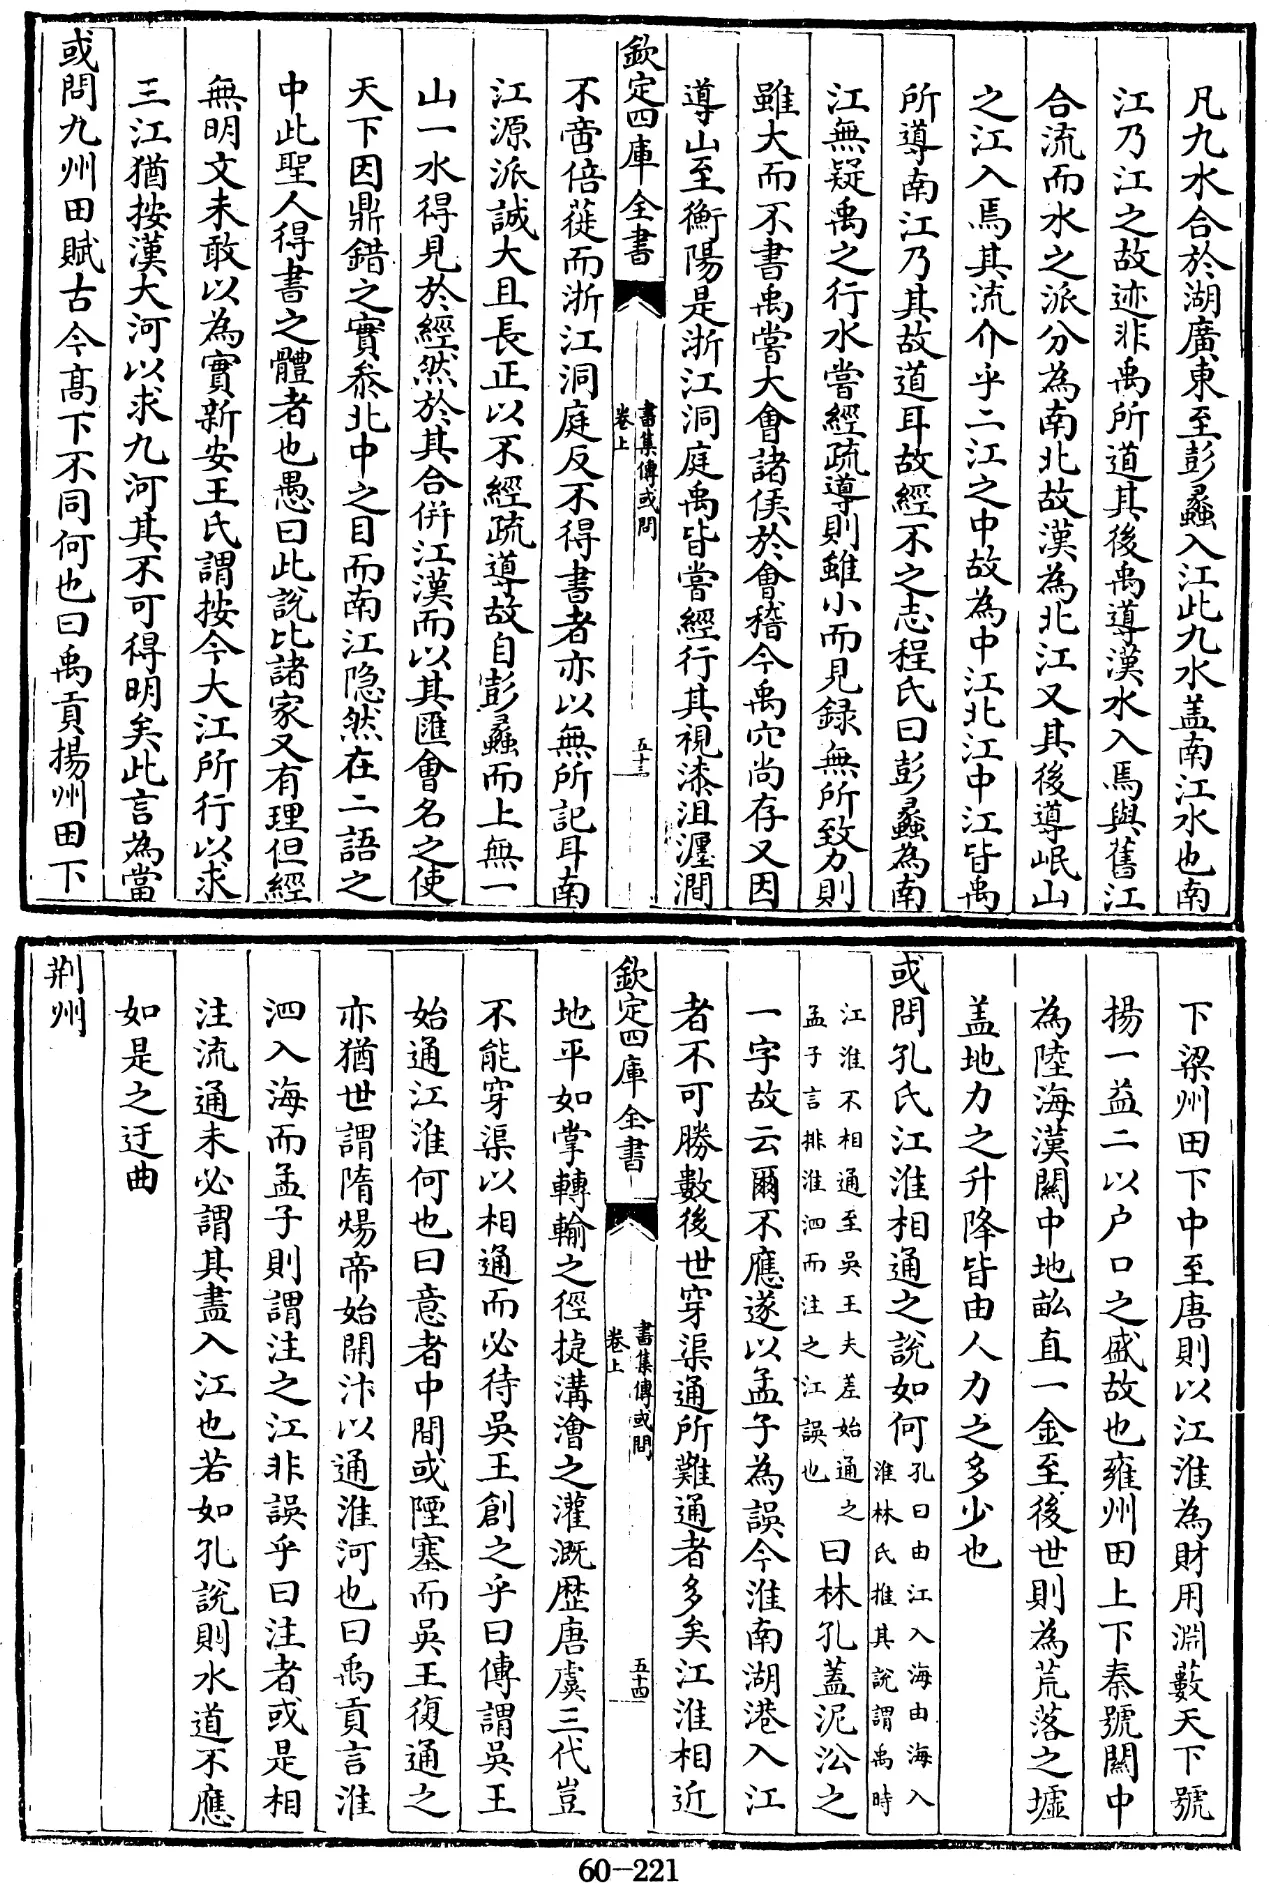 凡九水合於湖廣東至彭蠡入江此九水盖南江水也南
江乃江之故迹非禹所道其後禹導漢水入焉與舊江
合流而水之派分為南北故漢為北江又其後導岷山
之江入焉其流介乎二江之中故為中江北江中江皆禹
所導南江乃其故道耳故經不之志程氏曰彭蠡為南
江無疑禹之行水嘗經疏導則雖小而見録無所致力則
雖大而不書禹嘗大會諸侯於會稽今禹穴尚存又因
導山至衡陽是浙江洞庭禹皆嘗經行其視漆沮瀍澗
欽定四庫全書
書集傳或問
卷上
五十三
不啻倍蓰而浙江洞庭反不得書者亦以無所記耳南
江源派誠大且長正以不經疏導故自彭蠡而上無一
山一水得見於經然於其合併江漢而以其匯會名之使
天下因鼎錯之實叅北中之目而南江隐然在二語之
中此聖人得書之體者也愚曰此説比諸家又有理但經
無明文未敢以為實新安王氏謂按今大江所行以求
三江猶按漢大河以求九河其不可得明矣此言為當
或問九州田賦古今髙下不同何也曰禹貢揚州田下
下梁州田下中至唐則以江淮為財用淵藪天下號
揚一益二以户口之盛故也雍州田上下秦號闗中
為陸海漢闗中地畆直一金至後世則為荒落之墟
盖地力之升降皆由人力之多少也
或問孔氏江淮相通之説如何孔曰由江入海由海入
淮林氏推其説謂禹時
江淮不相通至吳王夫差始通之
孟子言排淮泗而注之江誤也曰林孔蓋泥㳂之
一字故云爾不應遂以孟子為誤今淮南湖港入江
者不可勝數後世穿渠通所難通者多矣江淮相近
欽定四庫全書
書集傳或問
卷上
五十四
地平如掌轉輸之徑捷溝澮之灌溉歴唐虞三代豈
不能穿渠以相通而必待吳王創之乎曰傳謂吳王
始通江淮何也曰意者中間或陻塞而吳王復通之
亦猶世謂隋煬帝始開汴以通淮河也曰禹貢言淮
泗入海而孟子則謂注之江非誤乎曰注者或是相
注流通未必謂其盡入江也若如孔説則水道不應
如是之迂曲
荆州
60-221